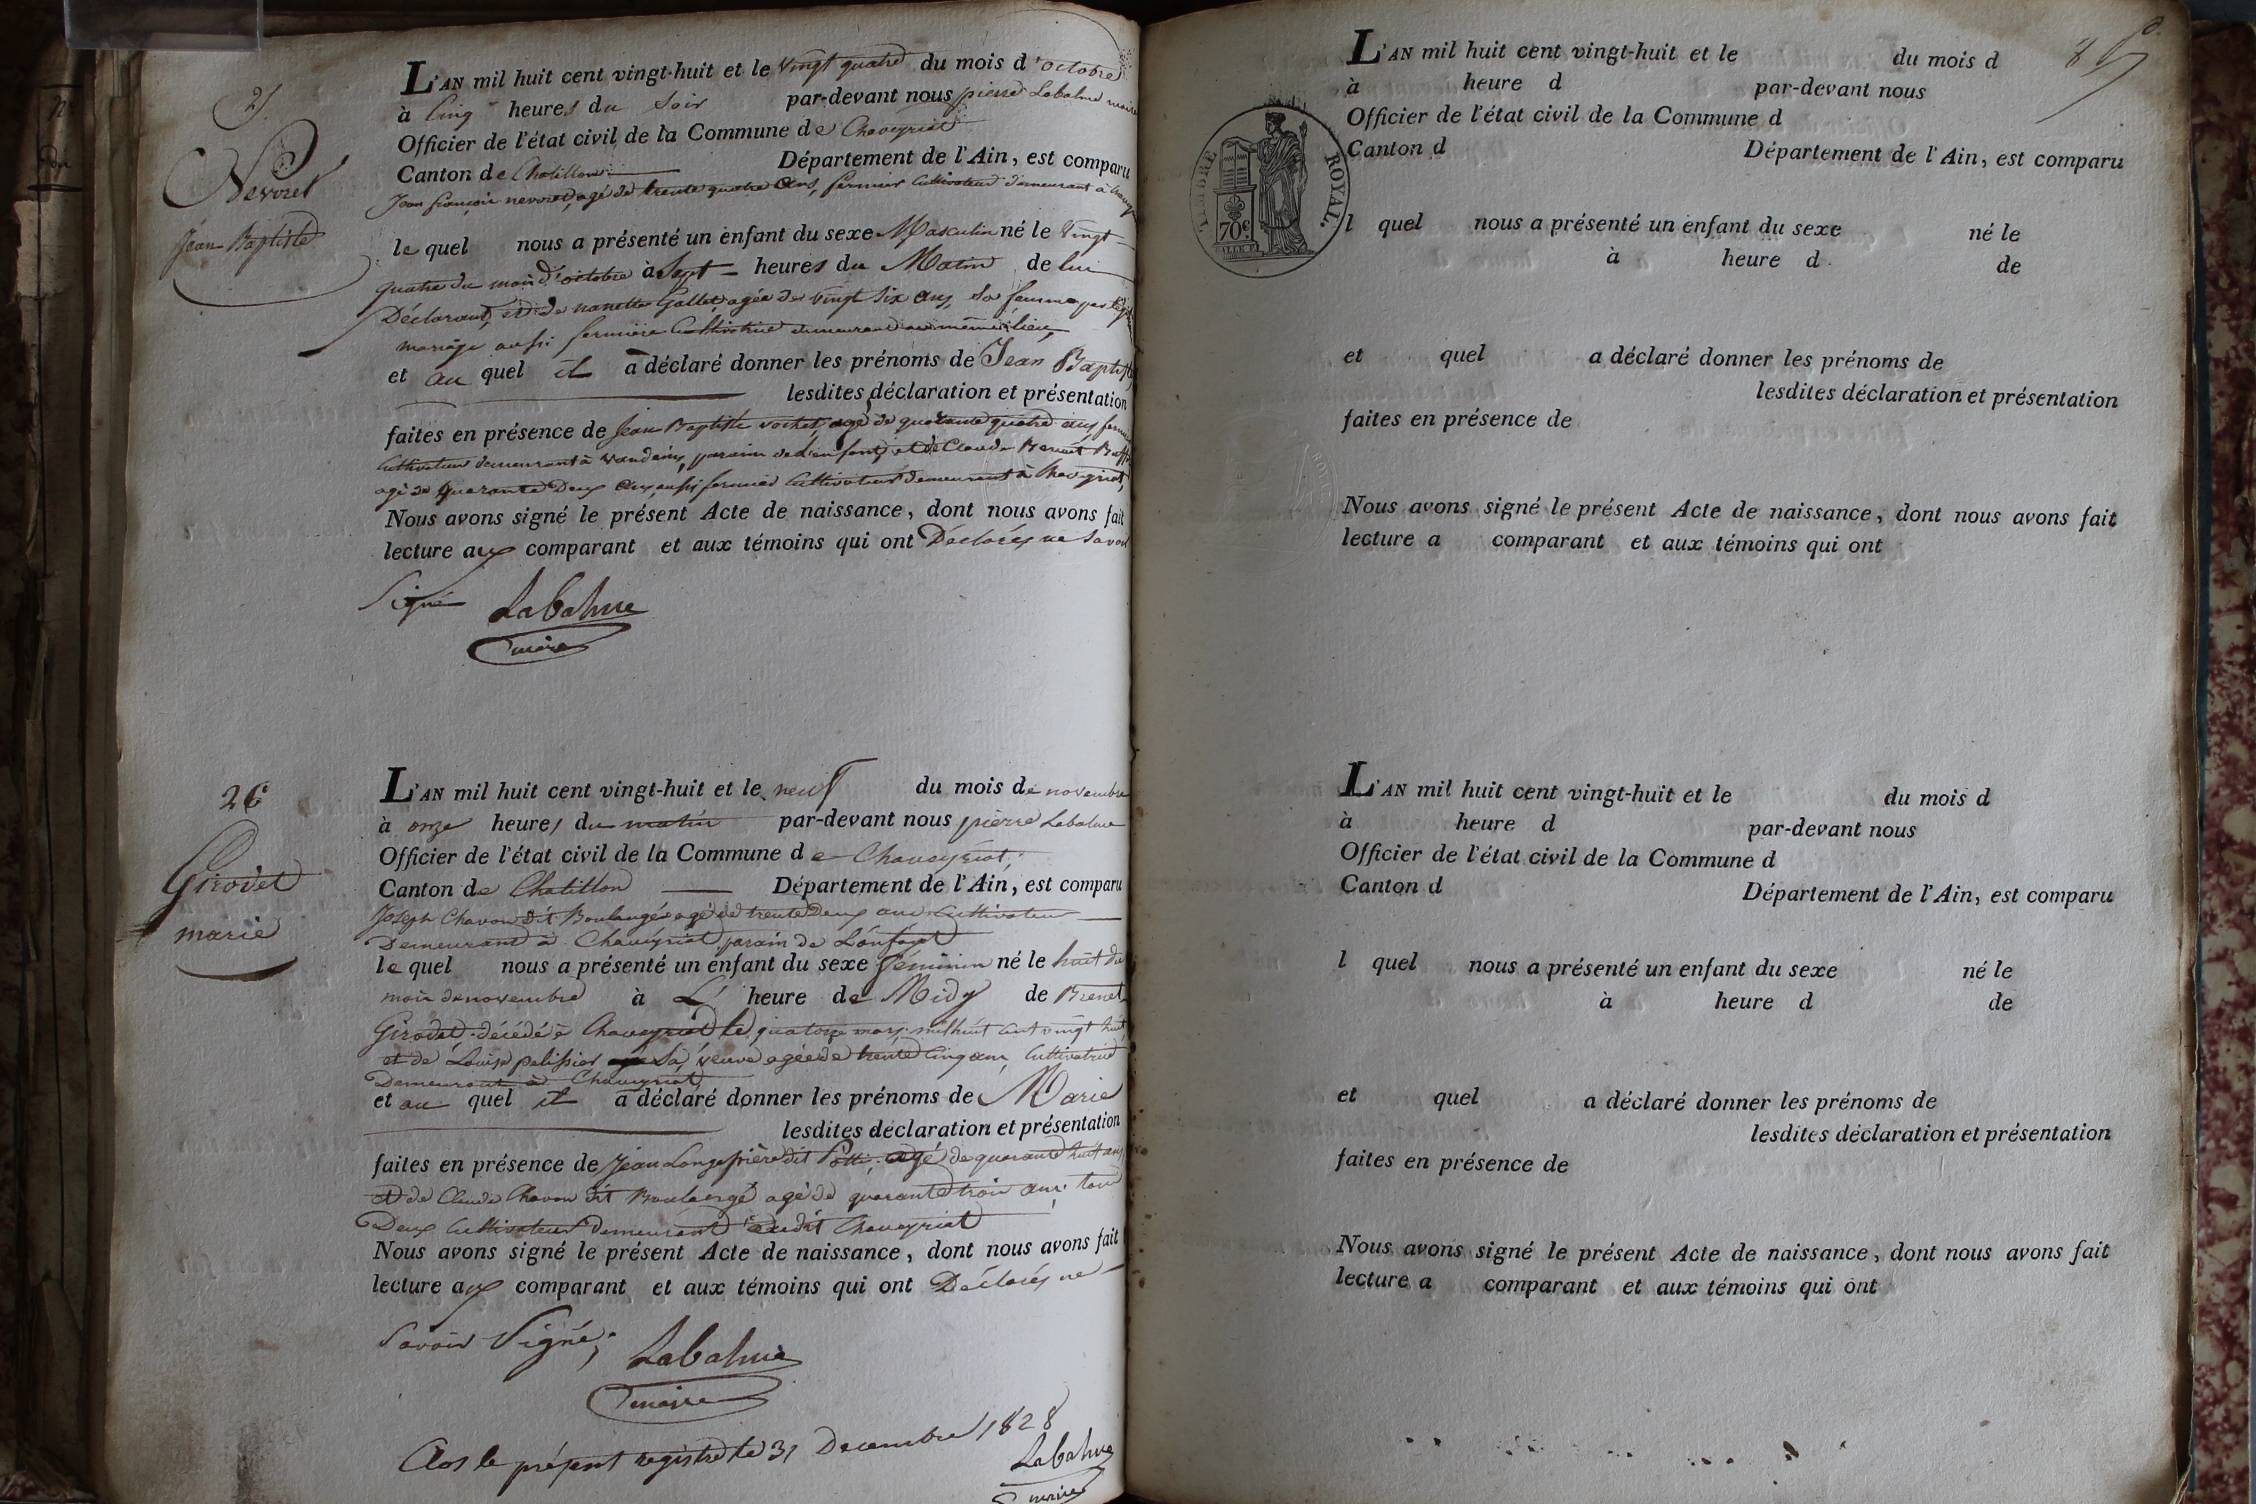 25
Nevoret
Jean Baptiste
L'AN mil huit cent vingt-huit et le vingt quatre du mois d'octobre
à cinq heures du soir par-devant nous pierre Labalme maire
Officier de l'état civil de la Commune de Chaveyriat
Canton de Chatillon Département de l'Ain, est comparu
Jean françois nevoret, agé de trente quatre ans, fermier Cultivateur demeurant à
le quel nous a présenté un enfant du sexe Masculin né le vingt
quatre du mois d'octobre à Sept heures du Matin de lui
Déclarant, et de nanette Gallet, agée de vingt six ans, sa femme par
mariage aussi fermière Cultivatrice demeurant au même lieu,
et au quel il a déclaré donner les prénoms de Jean Baptiste
lesdites déclaration et présentation
faites en présence de Jean Baptiste vochet, agé de quarante quatre ans fermier
Cultivateur demeurant à vandeins, parain de L'enfant, et de Claude Benoit
agé de quarante Deux ans, aussi fermier Cultivateur demeurant à Chaveyriat,
Nous avons signé le présent Acte de naissance, dont nous avons fait
lecture aux comparant et aux témoins qui ont Déclarés ne Savoir
Signé Labalme
maire
26
Girodet
marie
L'AN mil huit cent vingt-huit et le neuf du mois de novembre
à onze heures du matin par-devant nous pierre Labalme
Officier de l'état civil de la Commune de Chaveyriat,
Canton de Chatillon Département de l'Ain, est comparu
Joseph Chavon dit Boulangé agé de trente Deux ans Cultivateur
Demeurant à Chaveyriat parain de L'enfant
le quel nous a présenté un enfant du sexe féminin né le huit du
mois de novembre à L' heure de Midy de Benet
Girodet décédé à Chaveyriat le quatorze mars milhuit cent vingt huit
et de Louise pelissier Sa veuve agée de trente cinq ans, Cultivatrice
Demeurant à Chaveyriat,
et au quel il a déclaré donner les prénoms de Marie
lesdites déclaration et présentation
faites en présence de Jean Longefière dit agé de quarante huit ans,
et de Claude Chavon dit Boulangé agé de quarante trois ans, tous
Deux Cultivateurs demeurant audit Chaveyriat
Nous avons signé le présent Acte de naissance, dont nous avons fait
lecture aux comparant et aux témoins qui ont Déclarés ne
Savoir Signé; Labalme
maire
Clos le présent registre le 31 Decembre 1828
Labalme
maire
8
L'AN mil huit cent vingt-huit et le du mois d
à heure d par-devant nous
Officier de l'état civil de la Commune d
Canton d Département de l'Ain, est comparu
TIMBRE ROYAL.
70c.
l quel nous a présenté un enfant du sexe né le
à heure d de
et quel a déclaré donner les prénoms de
lesdites déclaration et présentation
faites en présence de
Nous avons signé le présent Acte de naissance, dont nous avons fait
lecture a comparant et aux témoins qui ont
L'AN mil huit cent vingt-huit et le du mois d
à heure d par-devant nous
Officier de l'état civil de la Commune d
Canton d Département de l'Ain, est comparu
l quel nous a présenté un enfant du sexe né le
à heure d de
et quel a déclaré donner les prénoms de
lesdites déclaration et présentation
faites en présence de
Nous avons signé le présent Acte de naissance, dont nous avons fait
lecture a comparant et aux témoins qui ont